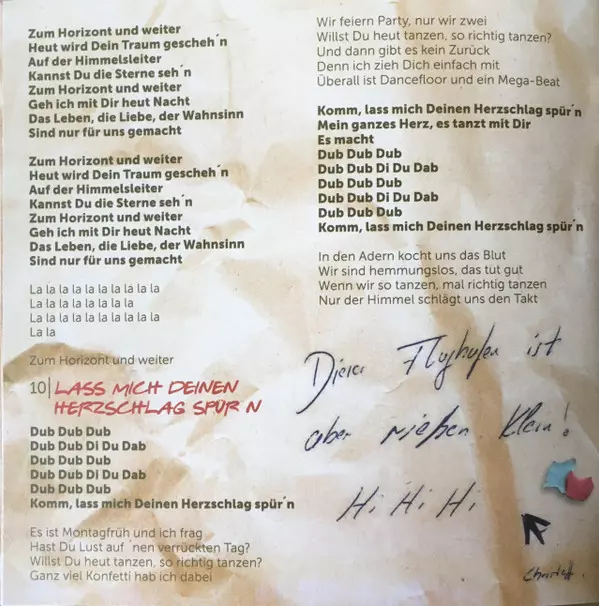 Zum Horizont und weiter
Heut wird Dein Traum gescheh´n
Auf der Himmelsleiter
Kannst Du die Sterne seh´n
Zum Horizont und weiter
Geh ich mit Dir heut Nacht
Das Leben, die Liebe, der Wahnsinn
Sind nur für uns gemacht
Zum Horizont und weiter
Heut wird Dein Traum gescheh´n
Auf der Himmelsleiter
Kannst Du die Sterne seh´n
Zum Horizont und weiter
Geh ich mit Dir heut Nacht
Das Leben, die Liebe, der Wahnsinn
Sind nur für uns gemacht
La la la la la la la la la la
La la la la la la la la
La la la la la la la la la la
La la
Zum Horizont und weiter
10| LASS MICH DEINEN
HERZSCHLAG SPÜR´N
Dub Dub Dub
Dub Dub Di Du Dab
Dub Dub Dub
Dub Dub Di Du Dab
Dub Dub Dub
Komm, lass mich Deinen Herzschlag spür´n
Es ist Montagfrüh und ich frag
Hast Du Lust auf ´nen verrückten Tag?
Willst Du heut tanzen, so richtig tanzen?
Ganz viel Konfetti hab ich dabei
Wir feiern Party, nur wir zwei
Willst Du heut tanzen, so richtig tanzen?
Und dann gibt es kein Zurück
Denn ich zieh Dich einfach mit
Überall ist Dancefloor und ein Mega-Beat
Komm, lass mich Deinen Herzschlag spür´n
Mein ganzes Herz, es tanzt mit Dir
Es macht
Dub Dub Dub
Dub Dub Di Du Dab
Dub Dub Dub
Dub Dub Di Du Dab
Dub Dub Dub
Komm, lass mich Deinen Herzschlag spür´n
In den Adern kocht uns das Blut
Wir sind hemmungslos, das tut gut
Wenn wir so tanzen, mal richtig tanzen
Nur der Himmel schlägt uns den Takt
Dieser Flughafen ist
aber klein!
Hi Hi Hi